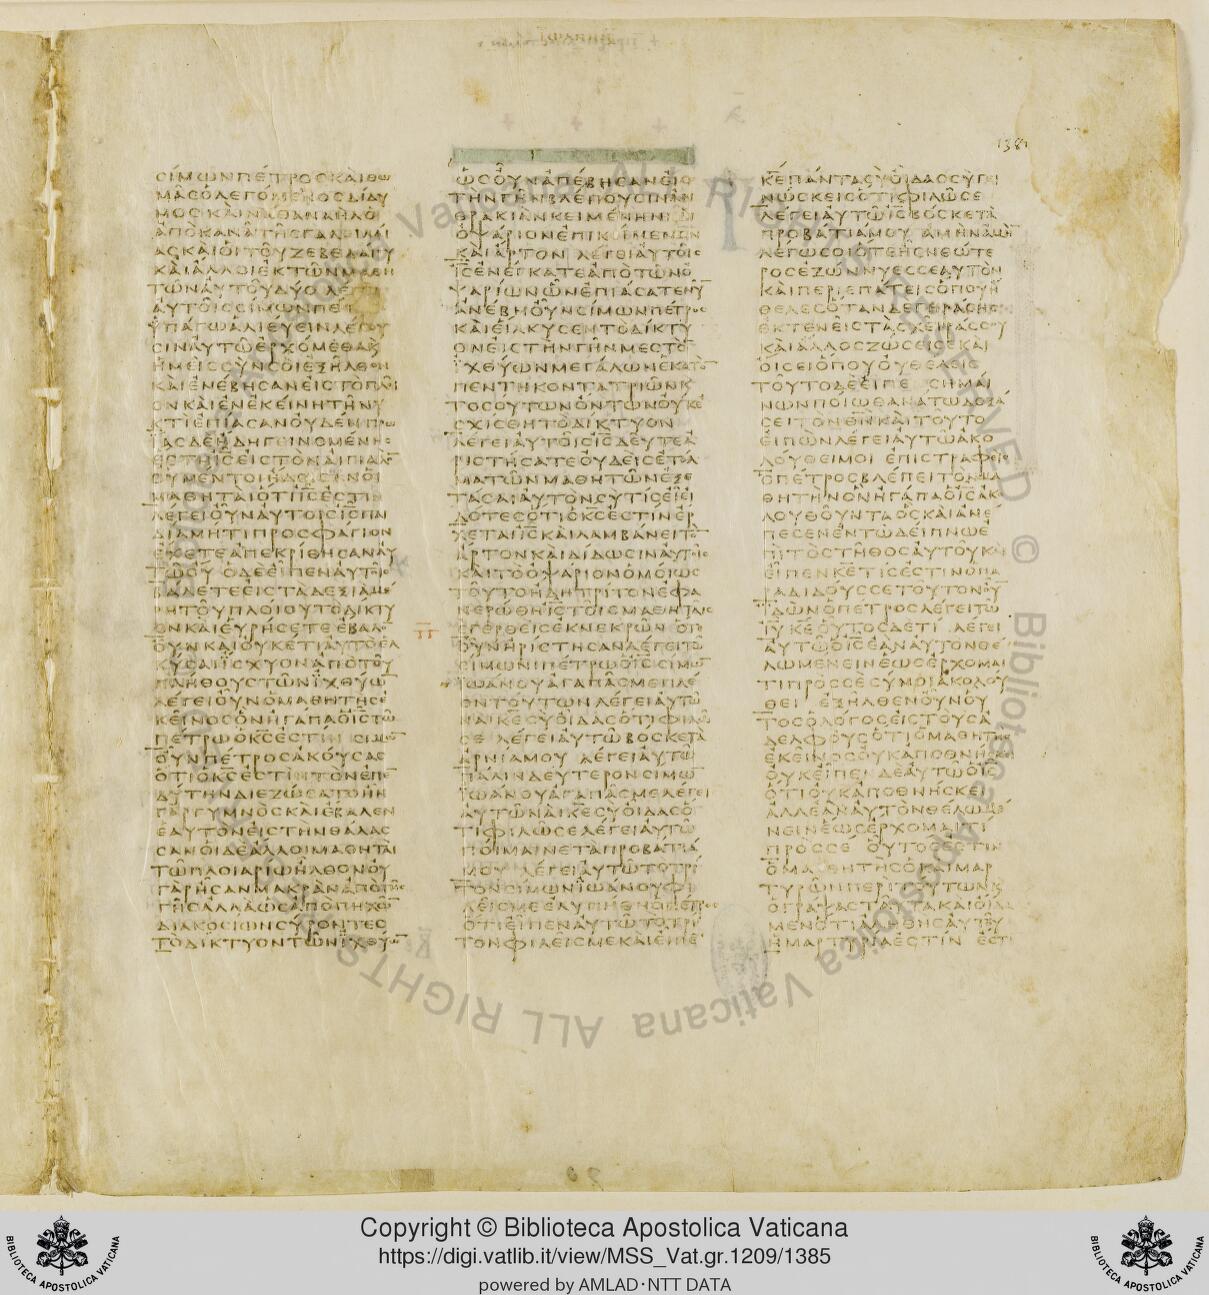 1381
ϹΙΜΩΝΠΕΤΡΟϹΚΑΙΘΩ
ΜΑϹΟΛΕΓΟΜΕΝΟϹΔΙΔΥ
ΜΟϹΚΑΙΝΑΘΑΝΑΗΛΟ
ΑΠΟΚΑΝΑΤΗϹΓΑΛΙΛΑΙ
ΑϹΚΑΙΟΙΤΟΥΖΕΒΕΔΑΙΟΥ
ΚΑΙΑΛΛΟΙΕΚΤΩΝΜΑΘΗ
ΤΩΝΑΥΤΟΥΔΥΟ ΛΕΓΕΙ
ΑΥΤΟΙϹϹΙΜΩΝΠΕΤ
ΥΠΑΓΩΑΛΙΕΥΕΙΝΛΕΓΟΥ
ϹΙΝΑΥΤΩΕΡΧΟΜΕΘΑΚ
ΗΜΕΙϹϹΥΝϹΟΙΕΞΗΛΘΟΝ
ΚΑΙΕΝΕΒΗϹΑΝΕΙϹΤΟΠΛΟΙ
ΟΝΚΑΙΕΝΕΚΕΙΝΗΤΗΝΥ
ΚΤΙΕΠΙΑϹΑΝΟΥΔΕΝΠΡΩ
ΙΑϹΔΕΗΔΗΓΕΙΝΟΜΕΝΗϹ
ΕϹΤΗΙϹΕΙϹΤΟΝΑΙΓΙΑΛΟ
ΟΥΜΕΝΤΟΙΗΔΕΙϹΑΝΟΙ
ΜΑΘΗΤΑΙΟΤΙΙϹΕϹΤΙΝ
ΛΕΓΕΙΟΥΝΑΥΤΟΙϹΙϹΠΑΙ
ΔΙΑΜΗΤΙΠΡΟϹΦΑΓΙΟΝ
ΕΧΕΤΕΑΠΕΚΡΙΘΗϹΑΝΑΥ
ΤΩΟΥ ΟΔΕΕΙΠΕΝΑΥΤΟΙϹ
ΒΑΛΕΤΕΕΙϹΤΑΔΕΞΙΑΜΕ
ΡΗΤΟΥΠΛΟΙΟΥΤΟΔΙΚΤΥ
ΟΝΚΑΙΕΥΡΗϹΕΤΕ ΕΒΑΛΟ
ΟΥΝΚΑΙΟΥΚΕΤΙΑΥΤΟΕΛ
ΚΥϹΑΙΙϹΧΥΟΝΑΠΟΤΟΥ
ΠΛΗΘΟΥϹΤΩΝΙΧΘΥΩ
ΛΕΓΕΙΟΥΝΟΜΑΘΗΤΗϹΕ
ΚΕΙΝΟϹΟΝΗΓΑΠΑΟΙϹΤΩ
ΠΕΤΡΩΟΚϹΕϹΤΙΝ ϹΙΜΩ
ΟΥΝΠΕΤΡΟϹΑΚΟΥϹΑϹ
ΟΤΙΟΚϹΕϹΤΙΝΤΟΝΕΠΕ
ΔΥΤΗΝΔΙΕΖΩϹΑΤΟΗΝ
ΓΑΡΓΥΜΝΟϹΚΑΙΕΒΑΛΕΝ
ΕΑΥΤΟΝΕΙϹΤΗΝΘΑΛΑϹ
ϹΑΝΟΙΔΕΑΛΛΟΙΜΑΘΗΤΑΙ
ΤΩΠΛΟΙΑΡΙΩΗΛΘΟΝΟΥ
ΓΑΡΗϹΑΝΜΑΚΡΑΝΑΠΟΤΗϹ
ΓΗϹΑΛΛΑΩϹΑΠΟΠΗΧΩ
ΔΙΑΚΟϹΙΩΝϹΥΡΟΝΤΕϹ
ΤΟΔΙΚΤΥΟΝΤΩΝΙΧΘΥΩ
ΩϹΟΥΝΑΠΕΒΗϹΑΝΕΙϹ
ΤΗΝΓΗΝΒΛΕΠΟΥϹΙΝΑΝ
ΘΡΑΚΙΑΝΚΕΙΜΕΝΗΝΚΑΙ
ΟΨΑΡΙΟΝΕΠΙΚΕΙΜΕΝΟΝ
ΚΑΙΑΡΤΟΝ ΛΕΓΕΙΑΥΤΟΙϹ
ΙϹΕΝΕΓΚΑΤΕΑΠΟΤΩΝΟ
ΨΑΡΙΩΝΩΝΕΠΙΑϹΑΤΕΝΥ
ΑΝΕΒΗΟΥΝϹΙΜΩΝΠΕΤΡΟϹ
ΚΑΙΕΙΛΚΥϹΕΝΤΟΔΙΚΤΥ
ΟΝΕΙϹΤΗΝΓΗΝΜΕϹΤΟ
ΙΧΘΥΩΝΜΕΓΑΛΩΝΕΚΑΤΟ
ΠΕΝΤΗΚΟΝΤΑΤΡΙΩΝΚ
ΤΟϹΟΥΤΩΝΟΝΤΩΝΟΥΚΕ
ϹΧΙϹΘΗΤΟΔΙΚΤΥΟΝ
ΛΕΓΕΙΑΥΤΟΙϹΙϹΔΕΥΤΕΑ
ΡΙϹΤΗϹΑΤΕΟΥΔΕΙϹΕΤΟΛ
ΜΑΤΩΝΜΑΘΗΤΩΝΕΞΕ
ΤΑϹΑΙΑΥΤΟΝϹΥΤΙϹΕΙΕΙ
ΔΟΤΕϹΟΤΙΟΚϹΕϹΤΙΝΕΡ
ΧΕΤΑΙΙϹΚΑΙΛΑΜΒΑΝΕΙΤΟ
ΑΡΤΟΝΚΑΙΔΙΔΩϹΙΝΑΥΤΟΙϹ
ΚΑΙΤΟΟΨΑΡΙΟΝΟΜΟΙΩϹ
ΤΟΥΤΟΗΔΗΤΡΙΤΟΝΕΦΑ
ΝΕΡΩΘΗΙϹΤΟΙϹΜΑΘΗΤΑΙϹ
ΕΓΕΡΘΕΙϹΕΚΝΕΚΡΩΝ ΟΤΕ
ΟΥΝΗΡΙϹΤΗϹΑΝΛΕΓΕΙΤΩ
ϹΙΜΩΝΙΠΕΤΡΩΟΙϹϹΙΜΩ
ΙΩΑΝΟΥΑΓΑΠΑϹΜΕΠΛΕ
ΟΝΤΟΥΤΩΝΛΕΓΕΙΑΥΤΩ
ΝΑΙΚΕϹΥΟΙΔΑϹΟΤΙΦΙΛΩ
ϹΕ ΛΕΓΕΙΑΥΤΩΒΟϹΚΕΤΑ
ΑΡΝΙΑΜΟΥ ΛΕΓΕΙΑΥΤΩ
ΠΑΛΙΝΔΕΥΤΕΡΟΝϹΙΜΩ
ΙΩΑΝΟΥΑΓΑΠΑϹΜΕΛΕΓΕΙ
ΑΥΤΩΝΑΙΚΕϹΥΟΙΔΑϹΟ
ΤΙΦΙΛΩϹΕΛΕΓΕΙΑΥΤΩ
ΠΟΙΜΑΙΝΕΤΑΠΡΟΒΑΤΙΑ
ΜΟΥ ΛΕΓΕΙΑΥΤΩΤΟΤΡΙ
ΤΟΝϹΙΜΩΝΙΩΑΝΟΥΦΙ
ΛΕΙϹΜΕΕΛΥΠΗΘΗΟΠΕΤΡΟϹ
ΟΤΙΕΙΠΕΝΑΥΤΩΤΟΤΡΙ
ΤΟΝΦΙΛΕΙϹΜΕΚΑΙΕΙΠΕ
ΚΕΠΑΝΤΑϹΥΟΙΔΑϹϹΥΓΕΙ
ΝΩϹΚΕΙϹΟΤΙΦΙΛΩϹΕ
ΛΕΓΕΙΑΥΤΩΙϹΒΟϹΚΕΤΑ
ΠΡΟΒΑΤΙΑΜΟΥ ΑΜΗΝΑΜΗ
ΛΕΓΩϹΟΙΟΤΕΗϹΝΕΩΤΕ
ΡΟϹΕΖΩΝΝΥΕϹϹΕΑΥΤΟΝ
ΚΑΙΠΕΡΙΕΠΑΤΕΙϹΟΠΟΥΗ
ΘΕΛΕϹΟΤΑΝΔΕΓΕΡΑϹΗϹ
ΕΚΤΕΝΕΙϹΤΑϹΧΕΙΡΑϹϹΟΥ
ΚΑΙΑΛΛΟϹΖΩϹΕΙϹΕΚΑΙ
ΟΙϹΕΙΟΠΟΥΟΥΘΕΛΕΙϹ
ΤΟΥΤΟΔΕΕΙΠΕ ϹΗΜΑΙ
ΝΩΝΠΟΙΩΘΑΝΑΤΩΔΟΞΑ
ϹΕΙΤΟΝΘΝΚΑΙΤΟΥΤΟ
ΕΙΠΩΝΛΕΓΕΙΑΥΤΩΑΚΟ
ΛΟΥΘΕΙΜΟΙ ΕΠΙϹΤΡΑΦΕΙϹ
ΟΠΕΤΡΟϹΒΛΕΠΕΙΤΟΝΜΑ
ΘΗΤΗΝΟΝΗΓΑΠΑΟΙϹΑΚ
ΛΟΥΘΟΥΝΤΑΟϹΚΑΙΑΝΕ
ΠΕϹΕΝΕΝΤΩΔΕΙΠΝΩΕ
ΠΙΤΟϹΤΗΘΟϹΑΥΤΟΥΚΑΙ
ΕΙΠΕΝΚΕΤΙϹΕϹΤΙΝΟΠΑ
ΡΑΔΙΔΟΥϹϹΕΤΟΥΤΟΝΟΥ
ΙΔΩΝΟΠΕΤΡΟϹΛΕΓΕΙΤΩ
ΙΥΚΕΟΥΤΟϹΔΕΤΙ ΛΕΓΕΙ
ΑΥΤΩΟΙϹΕΑΝΑΥΤΟΝΘΕ
ΛΩΜΕΝΕΙΝΕΩϹΕΡΧΟΜΑΙ
ΤΙΠΡΟϹϹΕϹΥΜΟΙΑΚΟΛΟΥ
ΘΕΙ ΕΞΗΛΘΕΝΟΥΝΟΥ
ΤΟϹΟΛΟΓΟϹΕΙϹΤΟΥϹΑ
ΔΕΛΦΟΥϹΟΤΙΟΜΑΘΗΤΗϹ
ΕΚΕΙΝΟϹΟΥΚΑΠΟΘΝΗϹΚΕΙ
ΟΥΚΕΙΠΕΝΔΕΑΥΤΩΟΙϹ
ΟΤΙΟΥΚΑΠΟΘΝΗϹΚΕΙ
ΑΛΛΕΑΝΑΥΤΟΝΘΕΛΩΜΕ
ΝΕΙΝΕΩϹΕΡΧΟΜΑΙΤΙ
ΠΡΟϹϹΕ ΟΥΤΟϹΕϹΤΙΝ
ΟΜΑΘΗΤΗϹΟΚΑΙΜΑΡ
ΤΥΡΩΝΠΕΡΙΤΟΥΤΩΝΚ
ΟΓΡΑΨΑϹΤΑΥΤΑΚΑΙΟΙΔΑ
ΜΕΝΟΤΙΑΛΗΘΗϹΑΥΤΟΥ
ΗΜΑΡΤΥΡΙΑΕϹΤΙΝ ΕϹΤΙ
Biblioteca Apostolica Vaticana ALL RIGHTS RESERVED ©
Copyright © Biblioteca Apostolica Vaticana
https://digi.vatlib.it/view/MSS_Vat.gr.1209/1385
powered by AMLAD·NTT DATA
BIBLIOTECA APOSTOLICA VATICANA
BIBLIOTECA APOSTOLICA VATICANA